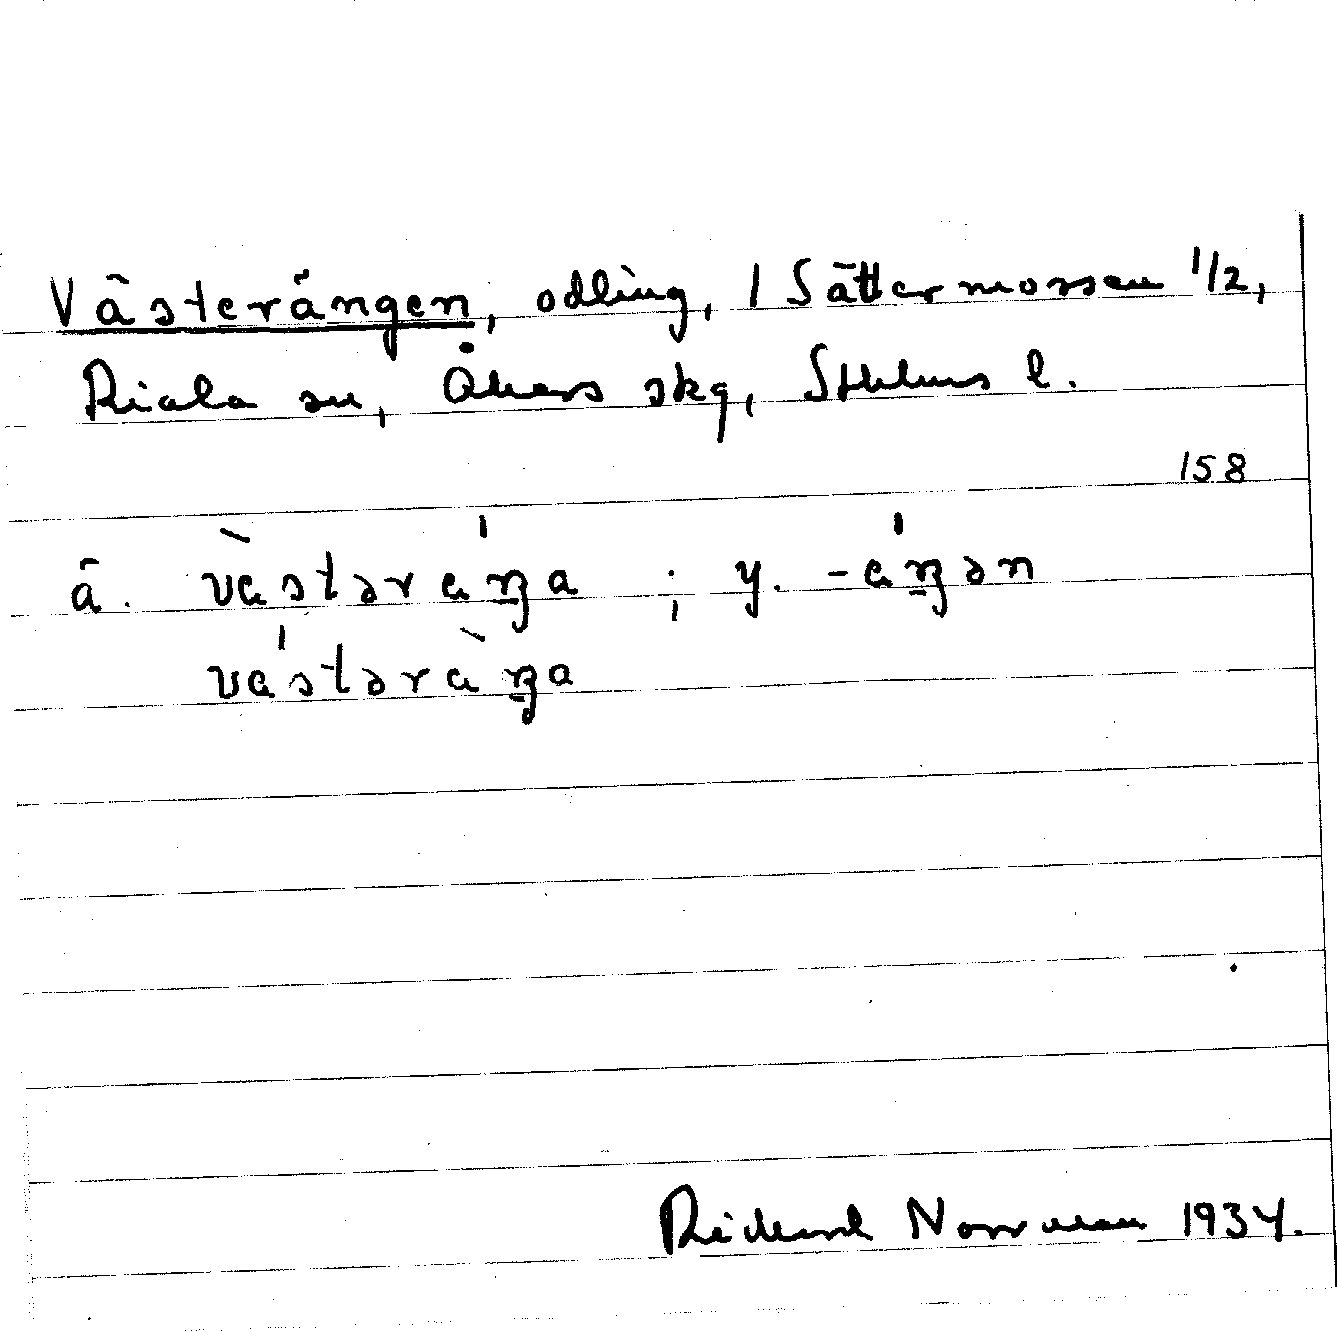 Västerängen, odling, 1 Sättermossen 1/2,
Riala sn, Åkers skg, Sthlms l.
158
ä. vàstəráŋa ; y. -áŋən
vástəràŋa
Rickard Norrman 1934.